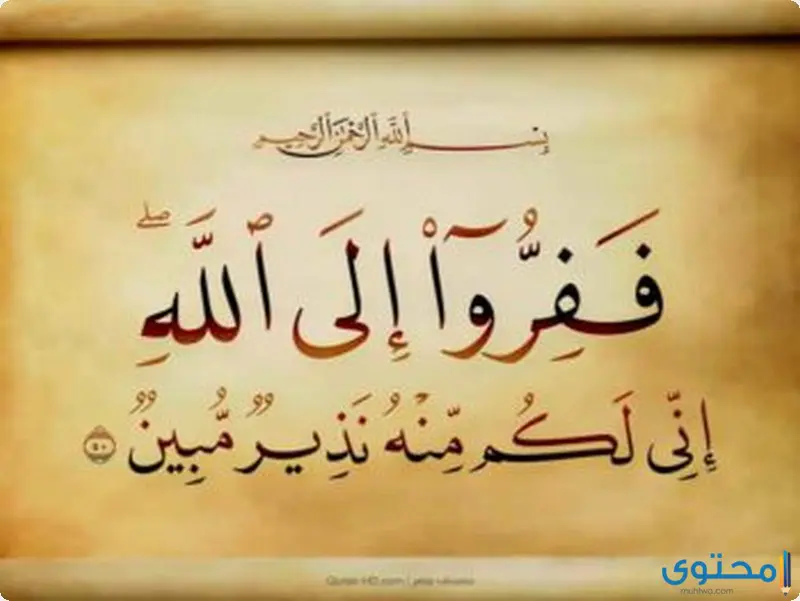 بِسْمِ اللَّهِ الرَّحْمَٰنِ الرَّحِيمِ
فَفِرُّوٓا۟ إِلَى ٱللَّهِ ۖ
إِنِّى لَكُم مِّنْهُ نَذِيرٌ مُّبِينٌ ٥٠
Quran-HD.com |
محتوى
muhtwa.com